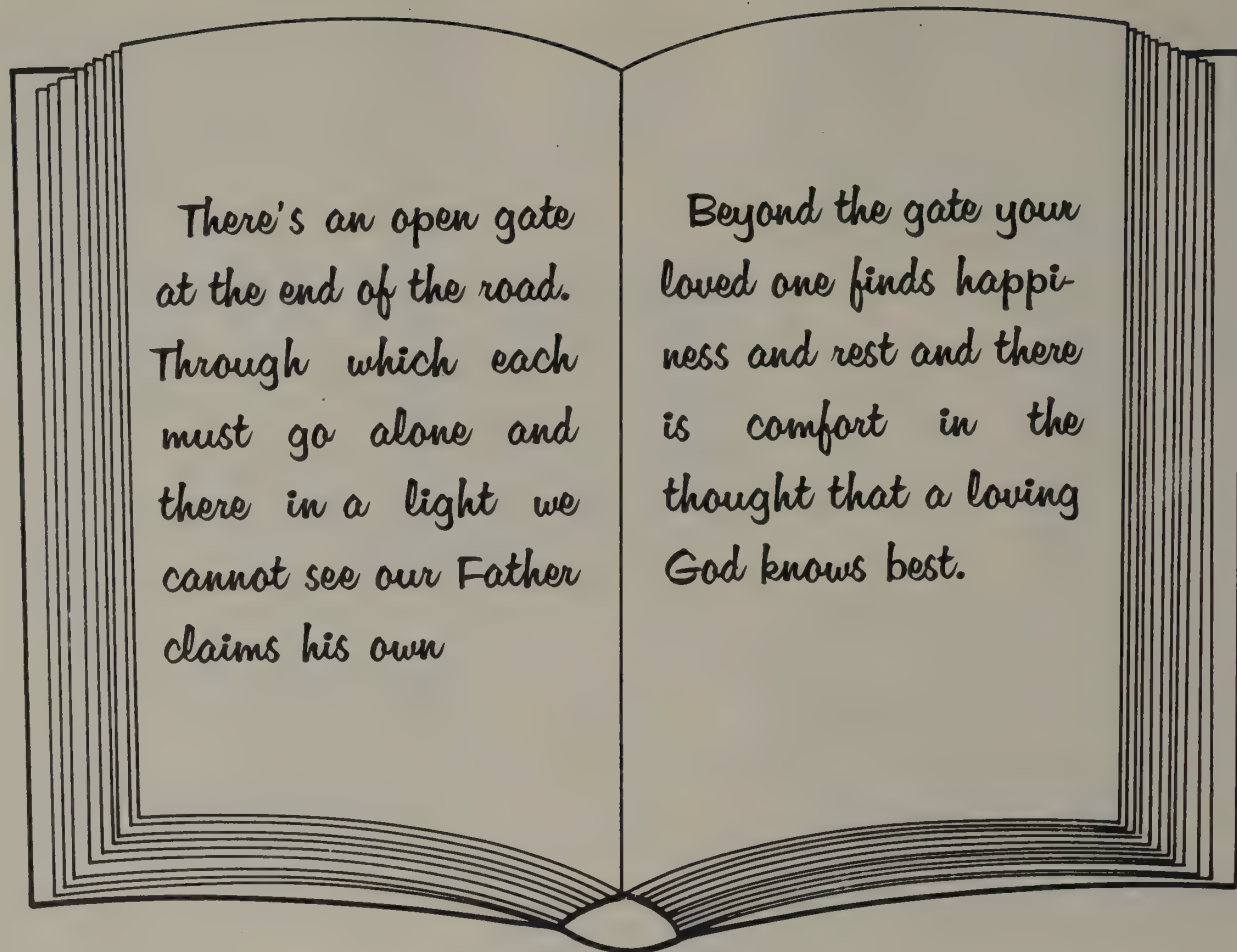 There's an open gate
at the end of the road.
Through which each
must go alone and
there in a light we
cannot see our Father
claims his own
Beyond the gate your
loved one finds happi-
ness and rest and there
is comfort in the
thought that a loving
God knows best.